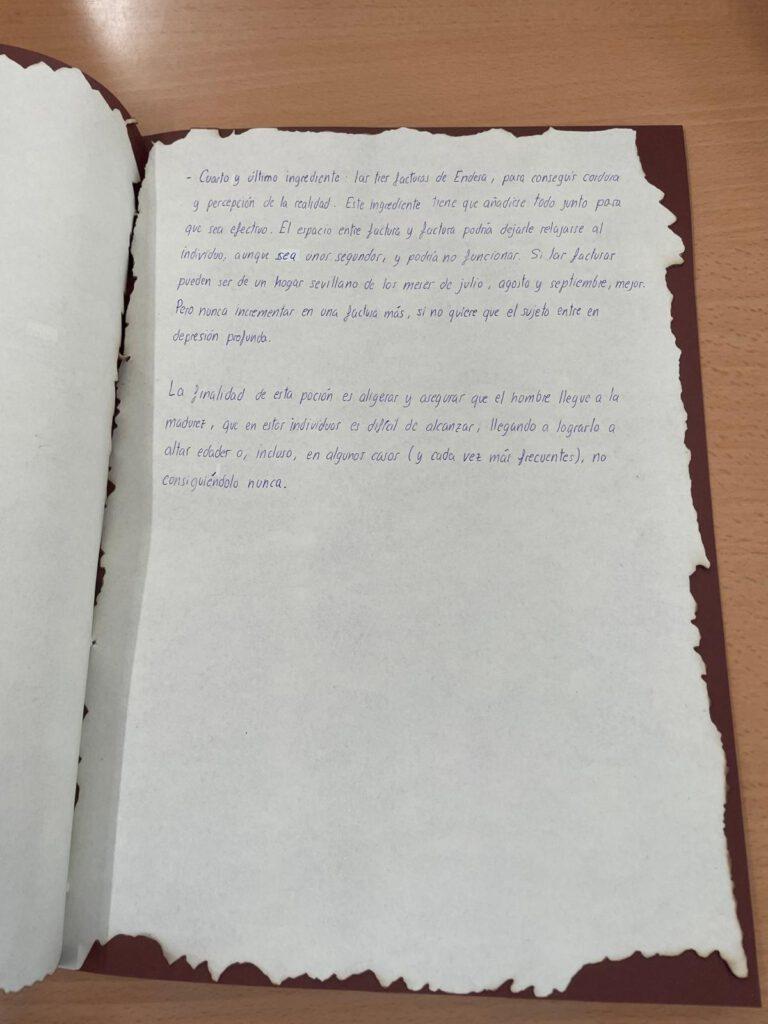 - Cuarto y último ingrediente: las tres facturas de Endesa, para conseguir cordura
y percepción de la realidad. Este ingrediente tiene que añadirse todo junto para
que sea efectivo. El espacio entre factura y factura podría dejarle relajarse al
individuo, aunque sea unos segundos, y podría no funcionar. Si las facturas
pueden ser de un hogar sevillano de los meses de julio, agosto y septiembre, mejor.
Pero nunca incrementar en una factura más, si no quiere que el sujeto entre en
depresión profunda.
La finalidad de esta poción es aligerar y asegurar que el hombre llegue a la
madurez, que en estos individuos es difícil de alcanzar, llegando a lograrlo a
altas edades o, incluso, en algunos casos (y cada vez más frecuentes), no
consiguiéndolo nunca.